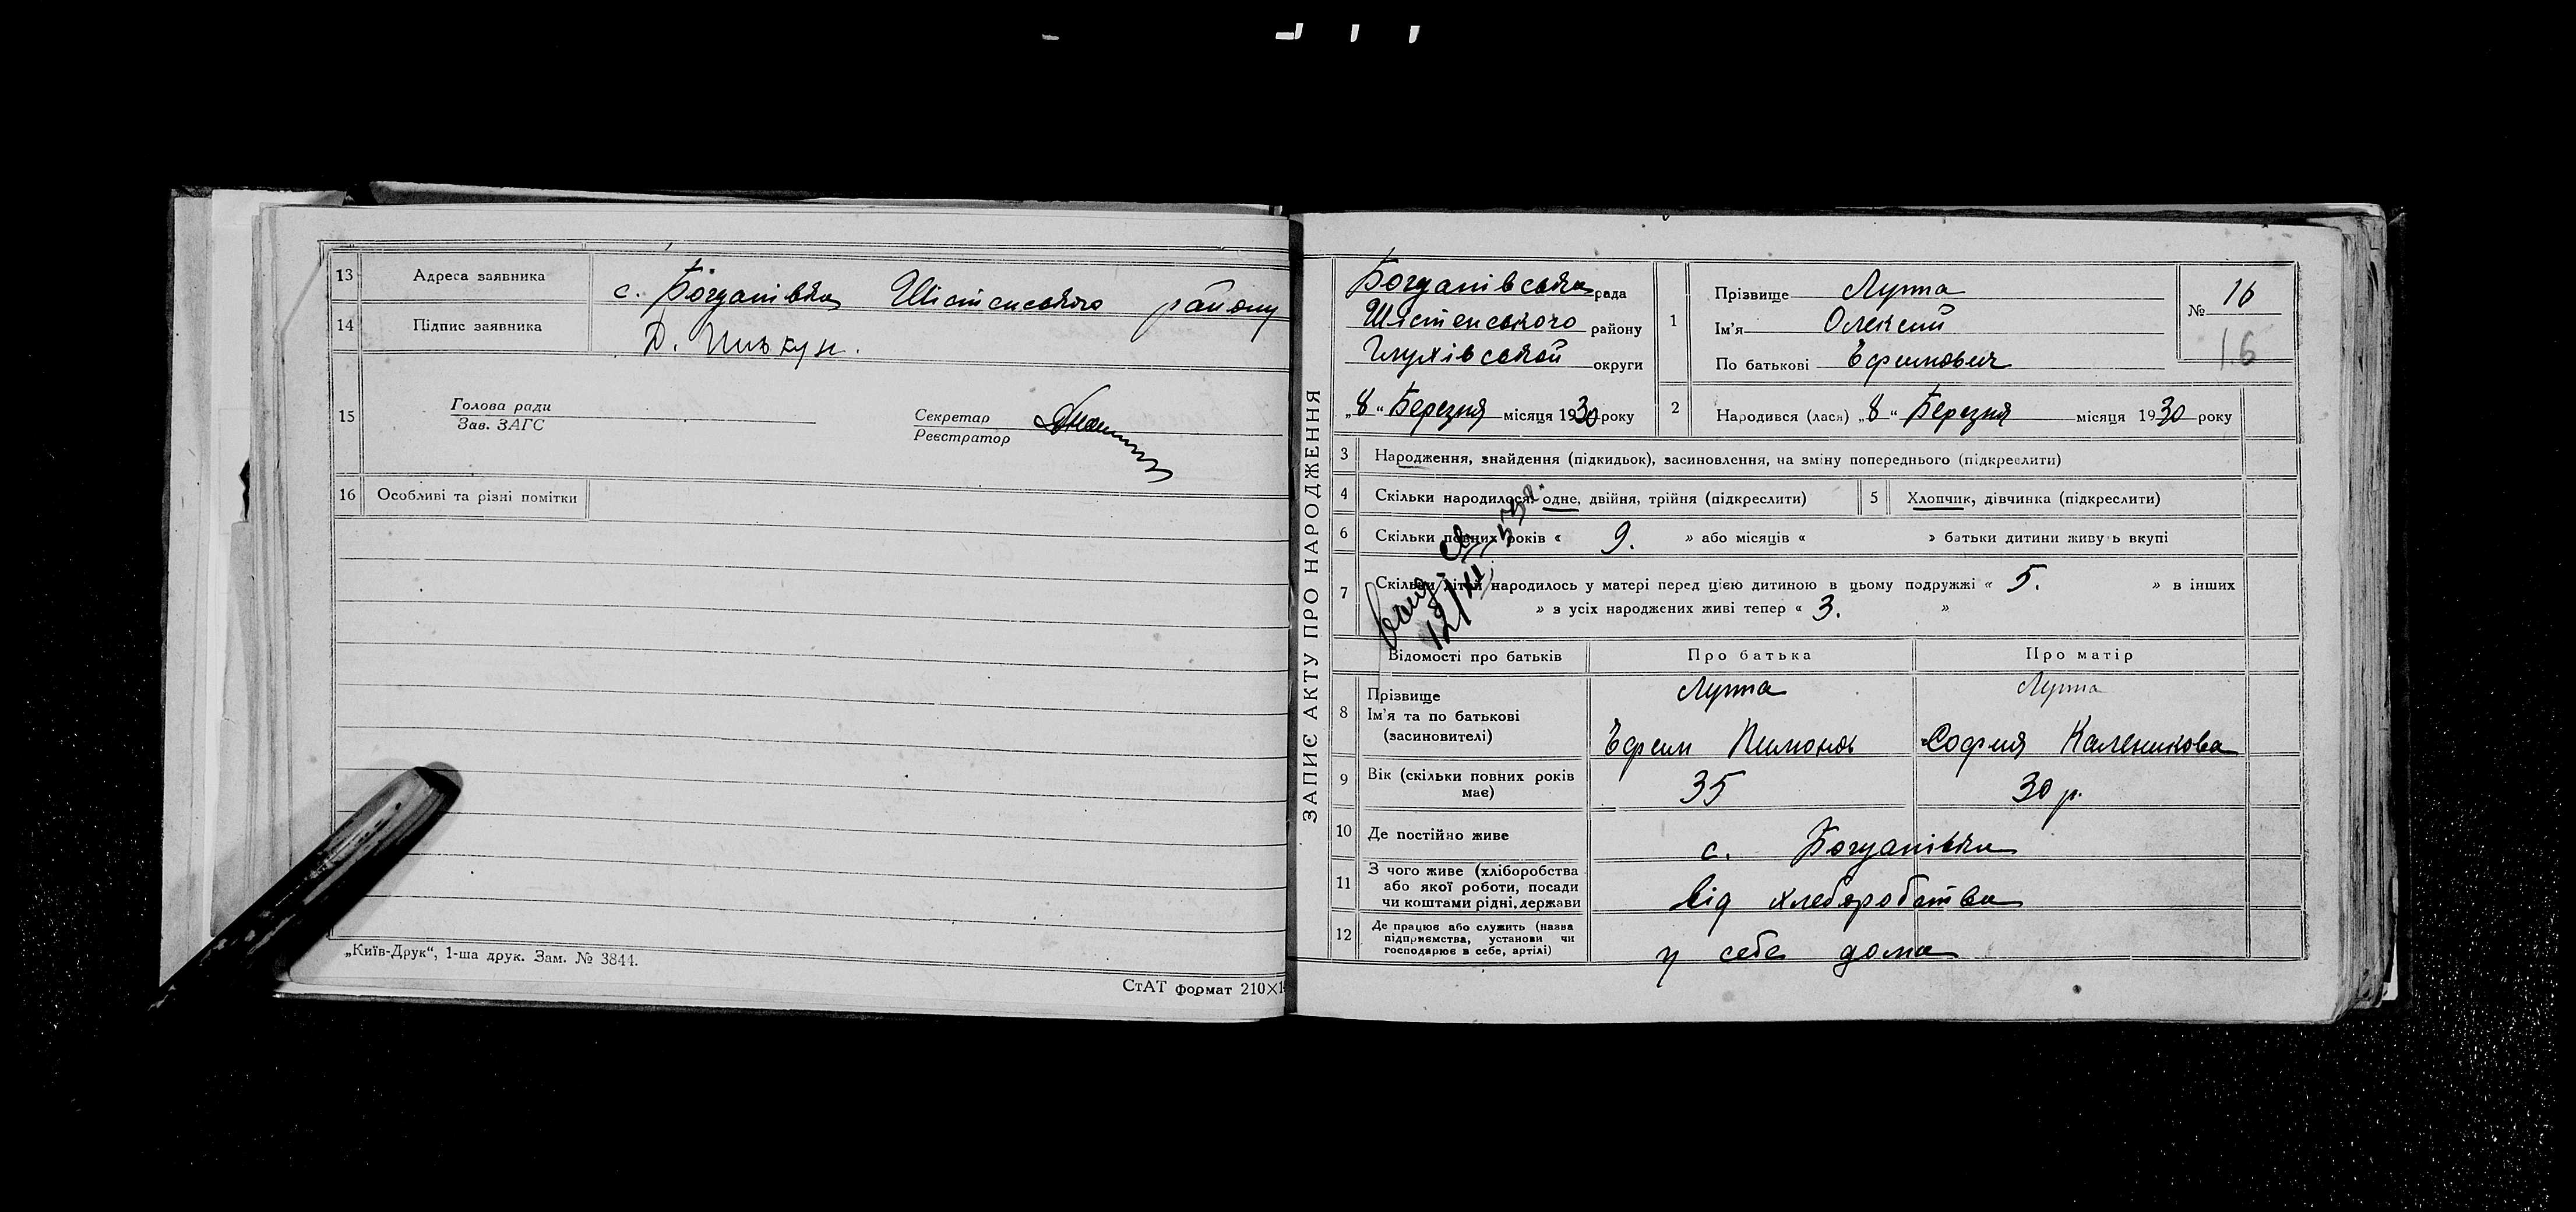 13 Адреса заявника с. Богданівка Шістенського району
14 Підпис заявника Д. Пивкун.
15 Голова ради
Зав. ЗАГС
Секретар
Реєстратор
16 Особливі та різні помітки
„Київ-Друк“, 1-ша друк. Зам. № 3844.
СтАТ формат 210×1
ЗАПИС АКТУ ПРО НАРОДЖЕННЯ
Богданівська рада
Шістенського району
Глухівськой округи
„8“ Березня місяця 1930 року
1 Прізвище Луппа
Ім'я Олексий
По батькові Ефимович
№ 16
16
2 Народився (лася) „8“ Березня місяця 1930 року
3 Народження, знайдення (підкидьок), засиновлення, на зміну попереднього (підкреслити)
4 Скільки народилося: одне, двійня, трійня (підкреслити) 5 Хлопчик, дівчинка (підкреслити)
6 Скільки повних років « 9. » або місяців « » батьки дитини живуть вкупі
7 Скільки дітей народилось у матері перед цією дитиною в цьому подружжі « 5. » в інших
» з усіх народжених живі тепер « 3. »
Відомості про батьків Про батька Про матір
8 Прізвище Луппа Луппа
Ім'я та по батькові
(засиновителі) Ефим Пимонов София Каленикова
9 Вік (скільки повних років
має) 35 30 р.
10 Де постійно живе с. Богданівка
11 З чого живе (хліборобства
або якої роботи, посади
чи коштами рідні, держави від хлеборобства
12 Де працює або служить (назва
підприємства, установи чи
господарює в себе, артілі) у себе дома